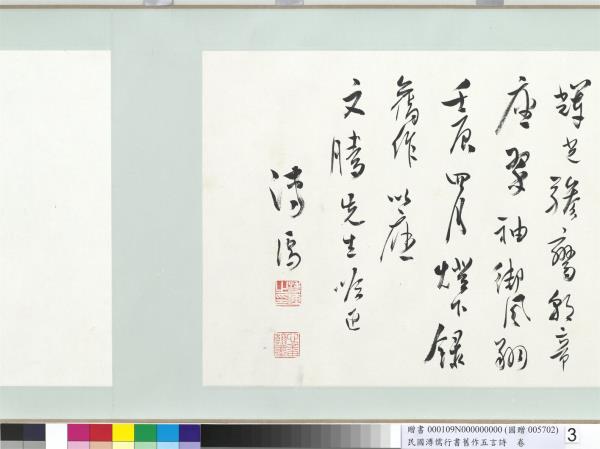 驂鸞朝帝
座翠袖御風翔
壬辰四月燈下錄
舊作以應
文騰先生吟正
溥儒
贈書 000109N000000000 (國贈 005702)
民國溥儒行書舊作五言詩 卷
3